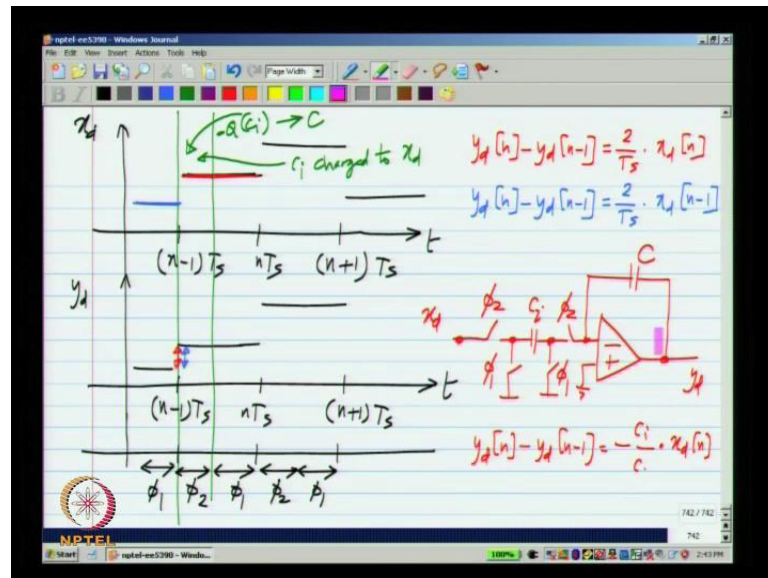 nptel-ee5390 - Windows Journal
File Edit View Insert Actions Tools Help
Page Width
B I
x_d
-Q(C_i) → C
C_i charged to x_d
(n-1)T_s nT_s (n+1)T_s t
y_d
(n-1)T_s nT_s (n+1)T_s t
ϕ_1 ϕ_2 ϕ_1 ϕ_2 ϕ_1
y_d[n] - y_d[n-1] = 2/T_s · x_d[n]
y_d[n] - y_d[n-1] = 2/T_s · x_d[n-1]
C
x_d ϕ_2 C_i ϕ_2
ϕ_1 ϕ_1 - + y_d
y_d[n] - y_d[n-1] = - C_i/C · x_d[n]
NPTEL
742 / 742
742
Start nptel-ee5390 - Windo... 100% 2:43 PM